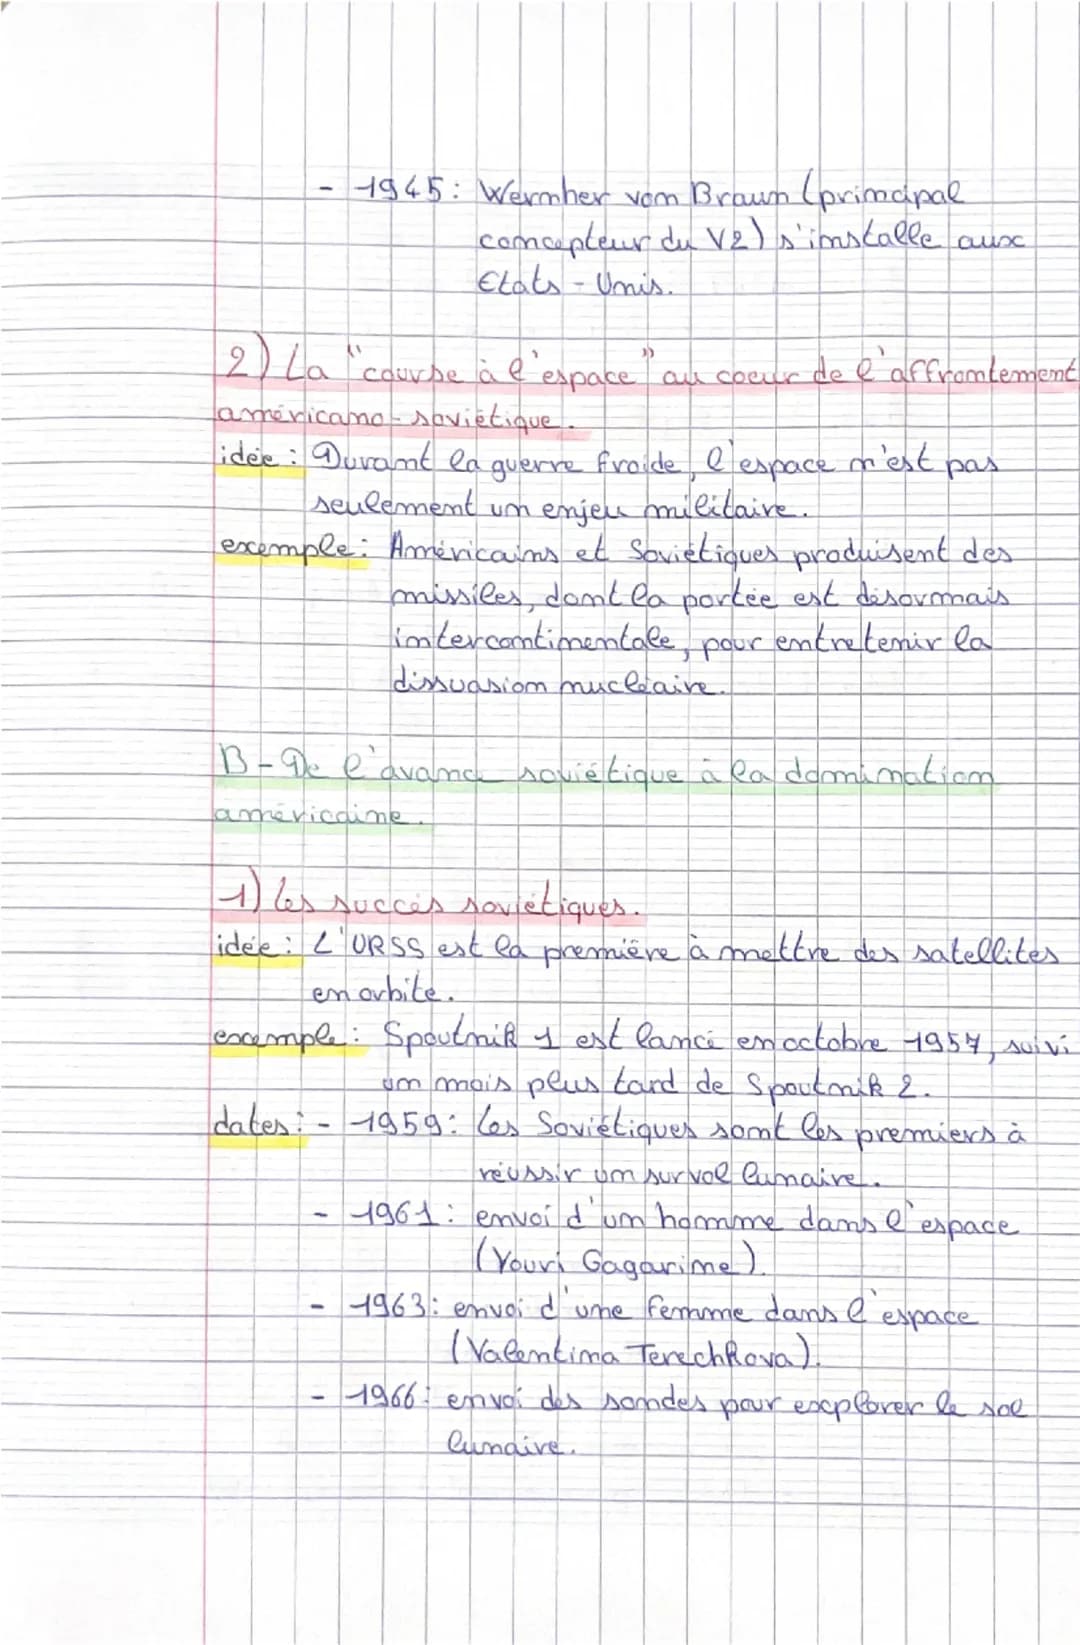 - 1945 : Wernher von Braun (principal
concepteur du V2) s'installe aux
Etats - Unis.
2) La "course à l'espace" au coeur de l'affrontement
américano-soviétique.
idée : Durant la guerre froide, l'espace n'est pas
seulement un enjeu militaire.
exemple : Américains et Soviétiques produisent des
missiles, dont la portée est désormais
intercontinentale, pour entretenir la
dissuasion nucléaire.
B - De l'avance soviétique à la domination
américaine.
1) Les succès soviétiques.
idée : L'URSS est la première à mettre des satellites
en orbite.
exemple : Spoutnik 1 est lancé en octobre 1957, suivi
un mois plus tard de Spoutnik 2.
dates : - 1959 : Les Soviétiques sont les premiers à
réussir un survol lunaire.
- 1961 : envoi d'un homme dans l'espace
(Youri Gagarine).
- 1963 : envoi d'une femme dans l'espace
(Valentina Terechkova).
- 1966 : envoi des sondes pour explorer le sol
lunaire.